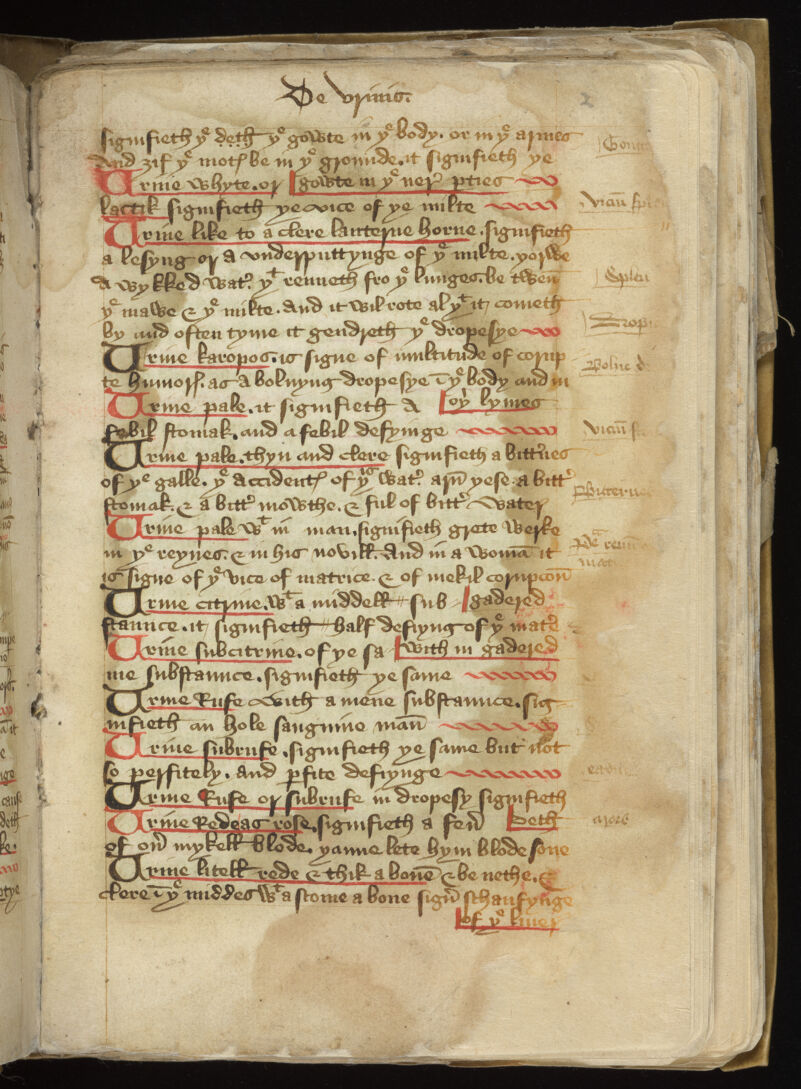 De vrinis.
signifieth yͤ deth yͤ gowte in yͤ body. or in yͤ armes
And ȝif yͤ mot be in yͤ grounde. it signifieth ye
Vrine whyte. or gowte in yͤ ner pties
lactik signifieth ye vice of ye milte
Vrine like to a clere lanterne horne. signifieth
a lesyng or a vnderputtynge of yͤ milte. yorwe
A wykked wat. yͭ renneth fro yͤ lunges. be twen
yͤ mawe & yͤ milte. And it wil rote al yͭ it cometh
by and often tyme it gendreth yͤ dropesye
Vrine karopos. is signe of multitude of corup
te humors. as a bolnyng dropesye ī yͤ body and in
Vrine pale. it signifieth A oy lymes
febil stomak. and a febil defyinge
Vrine pale. thyn and clere signifieth a bittnes
of yͤ galle. yͤ Accident of yͤ wat. arn yese. a bitt
stomak. & a bitt mowthe. & ful of bitt water
Vrine pale wͭ in man. signifieth grete werke
in yͤ reynes. & in his novill. And in a womā it
is signe of yͤ vice of matrice. & of mekil corupcōn
Vrine citrine. wͭ a middell sub gadered
staunce. it signifieth half defiyng of yͤ mat
Vrine subcitrine. of ye sa with in gadered
me substaunce. signifieth ye same
Vrine Rufe with a mene substaunce. sig
nifieth an hole sanguine man
Vrine subrufe. signifieth ye same but not
so perfitely. And pfite defiynge
Vrine Rufe or subrufe in dropesy signifieth
Vrine Rede as rose. signifieth a feu deth
of ou mykell blode. yanne lete hym blode sone
Vrine litell rede & thik a bone & be nethe. &
clere ī yͤ middes wͭ a stome a bone sign schaufynge
of yͤ liuer